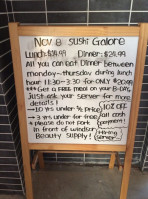 Nov 8 Sushi Galore
Lunch: $19.99 Dinner: $29.99
All you can eat Dinner between
monday-thursday during lunch
hour 11:30-3:30 for ONLY $20.99
*** Get a FREE meal on your B-DAY
Just ask your server for more
details!
→ 10 yrs under ½ price
→ 3 yrs under for free
* please do not park
in front of windsor
Beauty supply!
10% OFF
all cash
payment!
Hiring
server